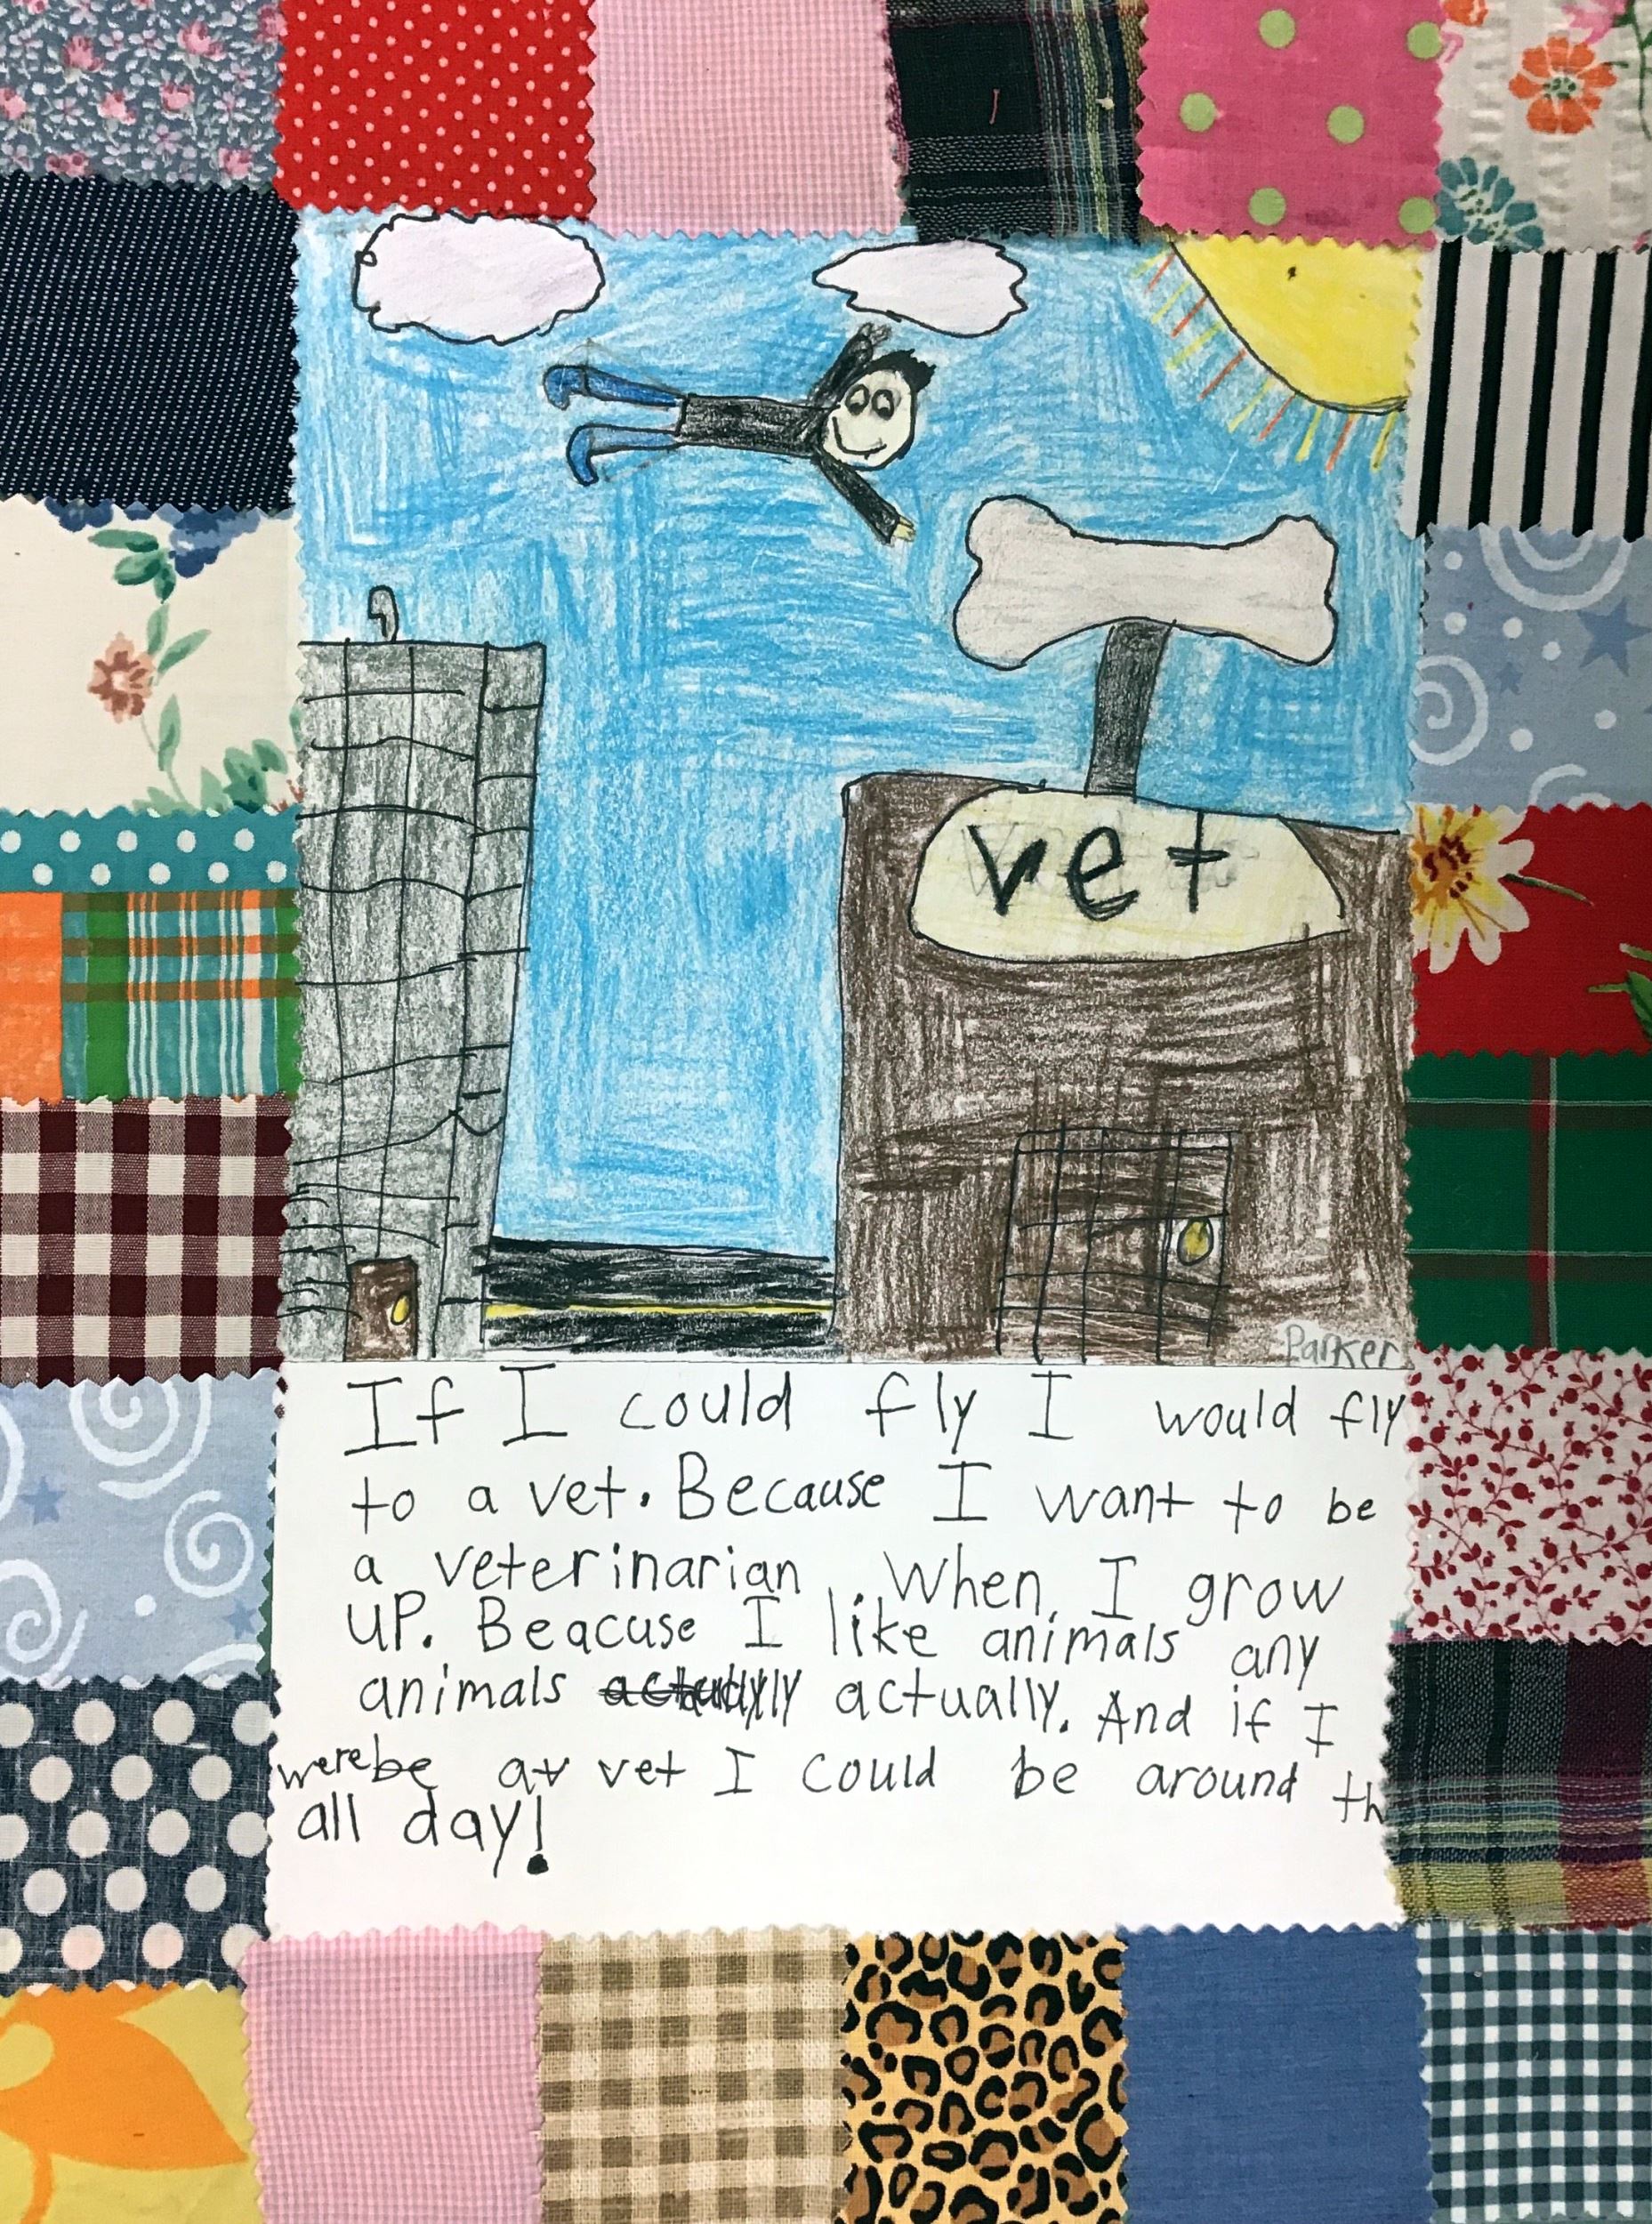 vet
Parker
If I could fly I would fly
to a vet. Because I want to be
a veterinarian. When I grow
up. Beacuse I like animals any
animals actually. And if I
were at vet I could be around th
all day!